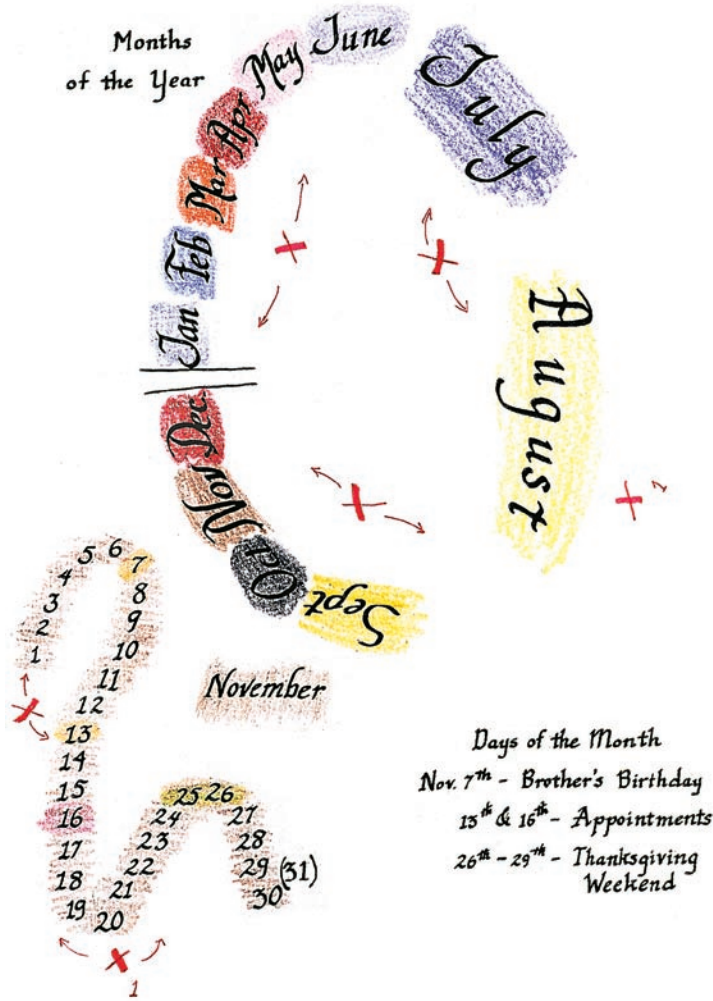 Months
of the Year
Jan
Feb
Mar
Apr
May
June
July
August
Sept
Oct
Nov
Dec.
1
2
3
4
5
6
7
8
9
10
11
12
13
14
15
16
17
18
19
20
21
22
23
24
25 26
27
28
29 (31)
30
1
November
Days of the Month
Nov. 7th - Brother's Birthday
13th & 16th - Appointments
26th - 29th - Thanksgiving
Weekend